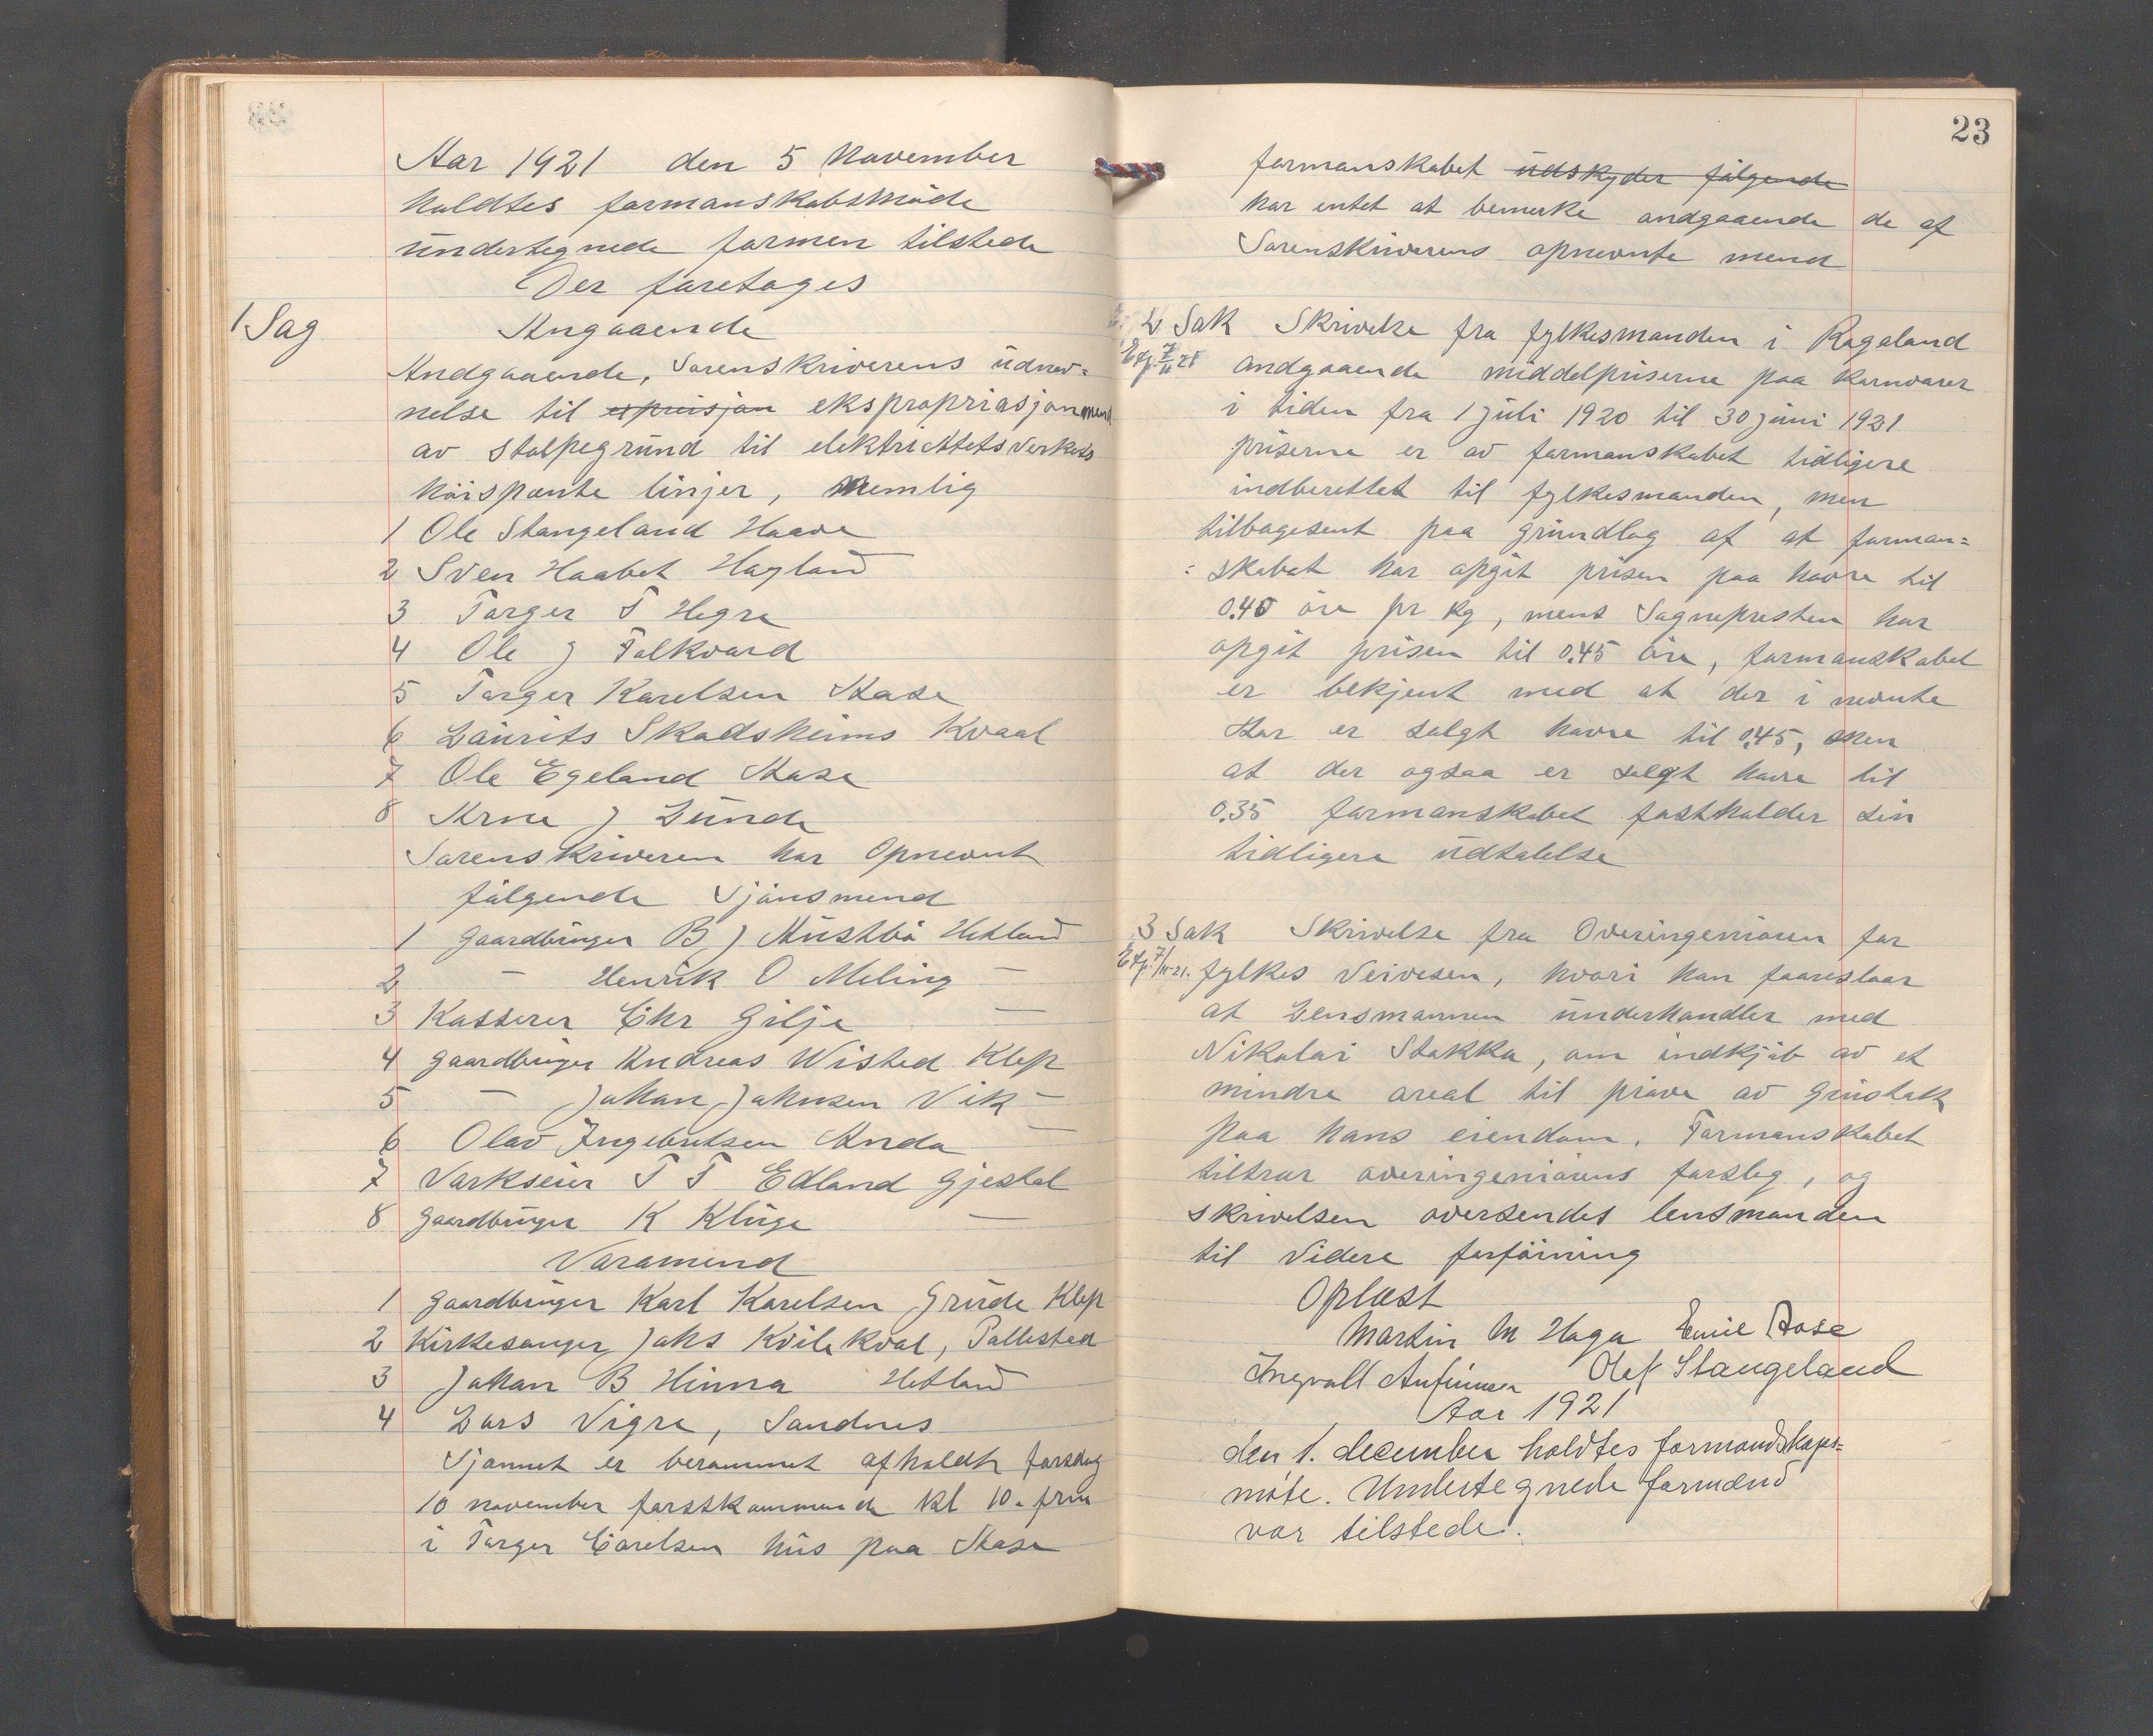 Aar 1921 den 5 November
holdtes formanskabsmöde
undertegnede formen tilstede
Der foretoges
1 Sag Angaaende
Andgaaende, Sorenskriverens udnev=
nelse til expreisjon ekspropriasjonmend
av stolpegrund til elektrictetsverkets
höispente linjer, nemlig
1 Ole Stangeland Haave
2 Sven Haabet Hogland
3 Torger T Hegre
4 Ole J Folkvord
5 Torger Karelsen Aase
6 Laurits Skadsheims Kvaal
7 Ole Egeland Aase
8 Arne J Lunde
Sorenskriveren har Opnevnt
fölgende Sjönsmend
1 gaardbruger B J Austbö Hetland
2 — Henrik O Meling —
3 Kasserer Chr Gilje —
4 gaardbruger Andreas Wisted Klep
5 — Johan Johnsen Vik —
6 Olav Ingebretsen Anda —
7 Verkseier T T Edland Gjestal
8 gaardbruger K Kluge —
Varamend
1 gaardbruger Karl Karelsen Grude Klep
2 Kirkesanger Johs Kvilekval,
3 Johan B Hinna Hetland
4 Lars Vigre, Sandnes
Sjönnet er berammet afholdt torsdag
10 november førstkommende kl 10. frm
i Torger Carelsen hus paa Aase
23
formanskabet udskyder fölgende
har entet at bemerke andgaaende de af
Sorenskriverens opnevnte mend
2 Sak Skrivelse fra fylkesmanden i Rogaland
Exp. 7/11 21 andgaaende middelpriserne paa kornvarer
i tiden fra 1 juli 1920 til 30 juni 1921
priserne er av formanskabet tidligere
indberettet til fylkesmanden, men
tilbagesent paa grundlag af at forman=
=skabet har opgit prisen paa havre til
0.40 öre pr kg, mens Sognepresten har
opgit prisen til 0.45 öre, formanskabet
er bekjent med at der i nevnte
Aar er solgt havre til 0,45, men
at der ogsaa er solgt havre til
0.35 formanskabet fastholder sin
tidligere udtalelse
3 Sak Skrivelse fra Overingeniören for
Exp. 7/11-21. fylkes Veivesen, hvori han foareslaar
at Lensmannen underhandler med
Nikolai Stokka, om indkjöb av et
mindre areal til pröve av grustak
paa hans eiendom. Formanskabet
tiltrær overingeniörens forslag, og
skrivelsen oversendes lensmanden
til Videre forföining
Oplæst
Martin M Haga Emil Aase
Ingvald Olef Stangeland
Aar 1921
den 1. december holdtes formandskaps=
møte. Undertegnede formænd
var tilstede.